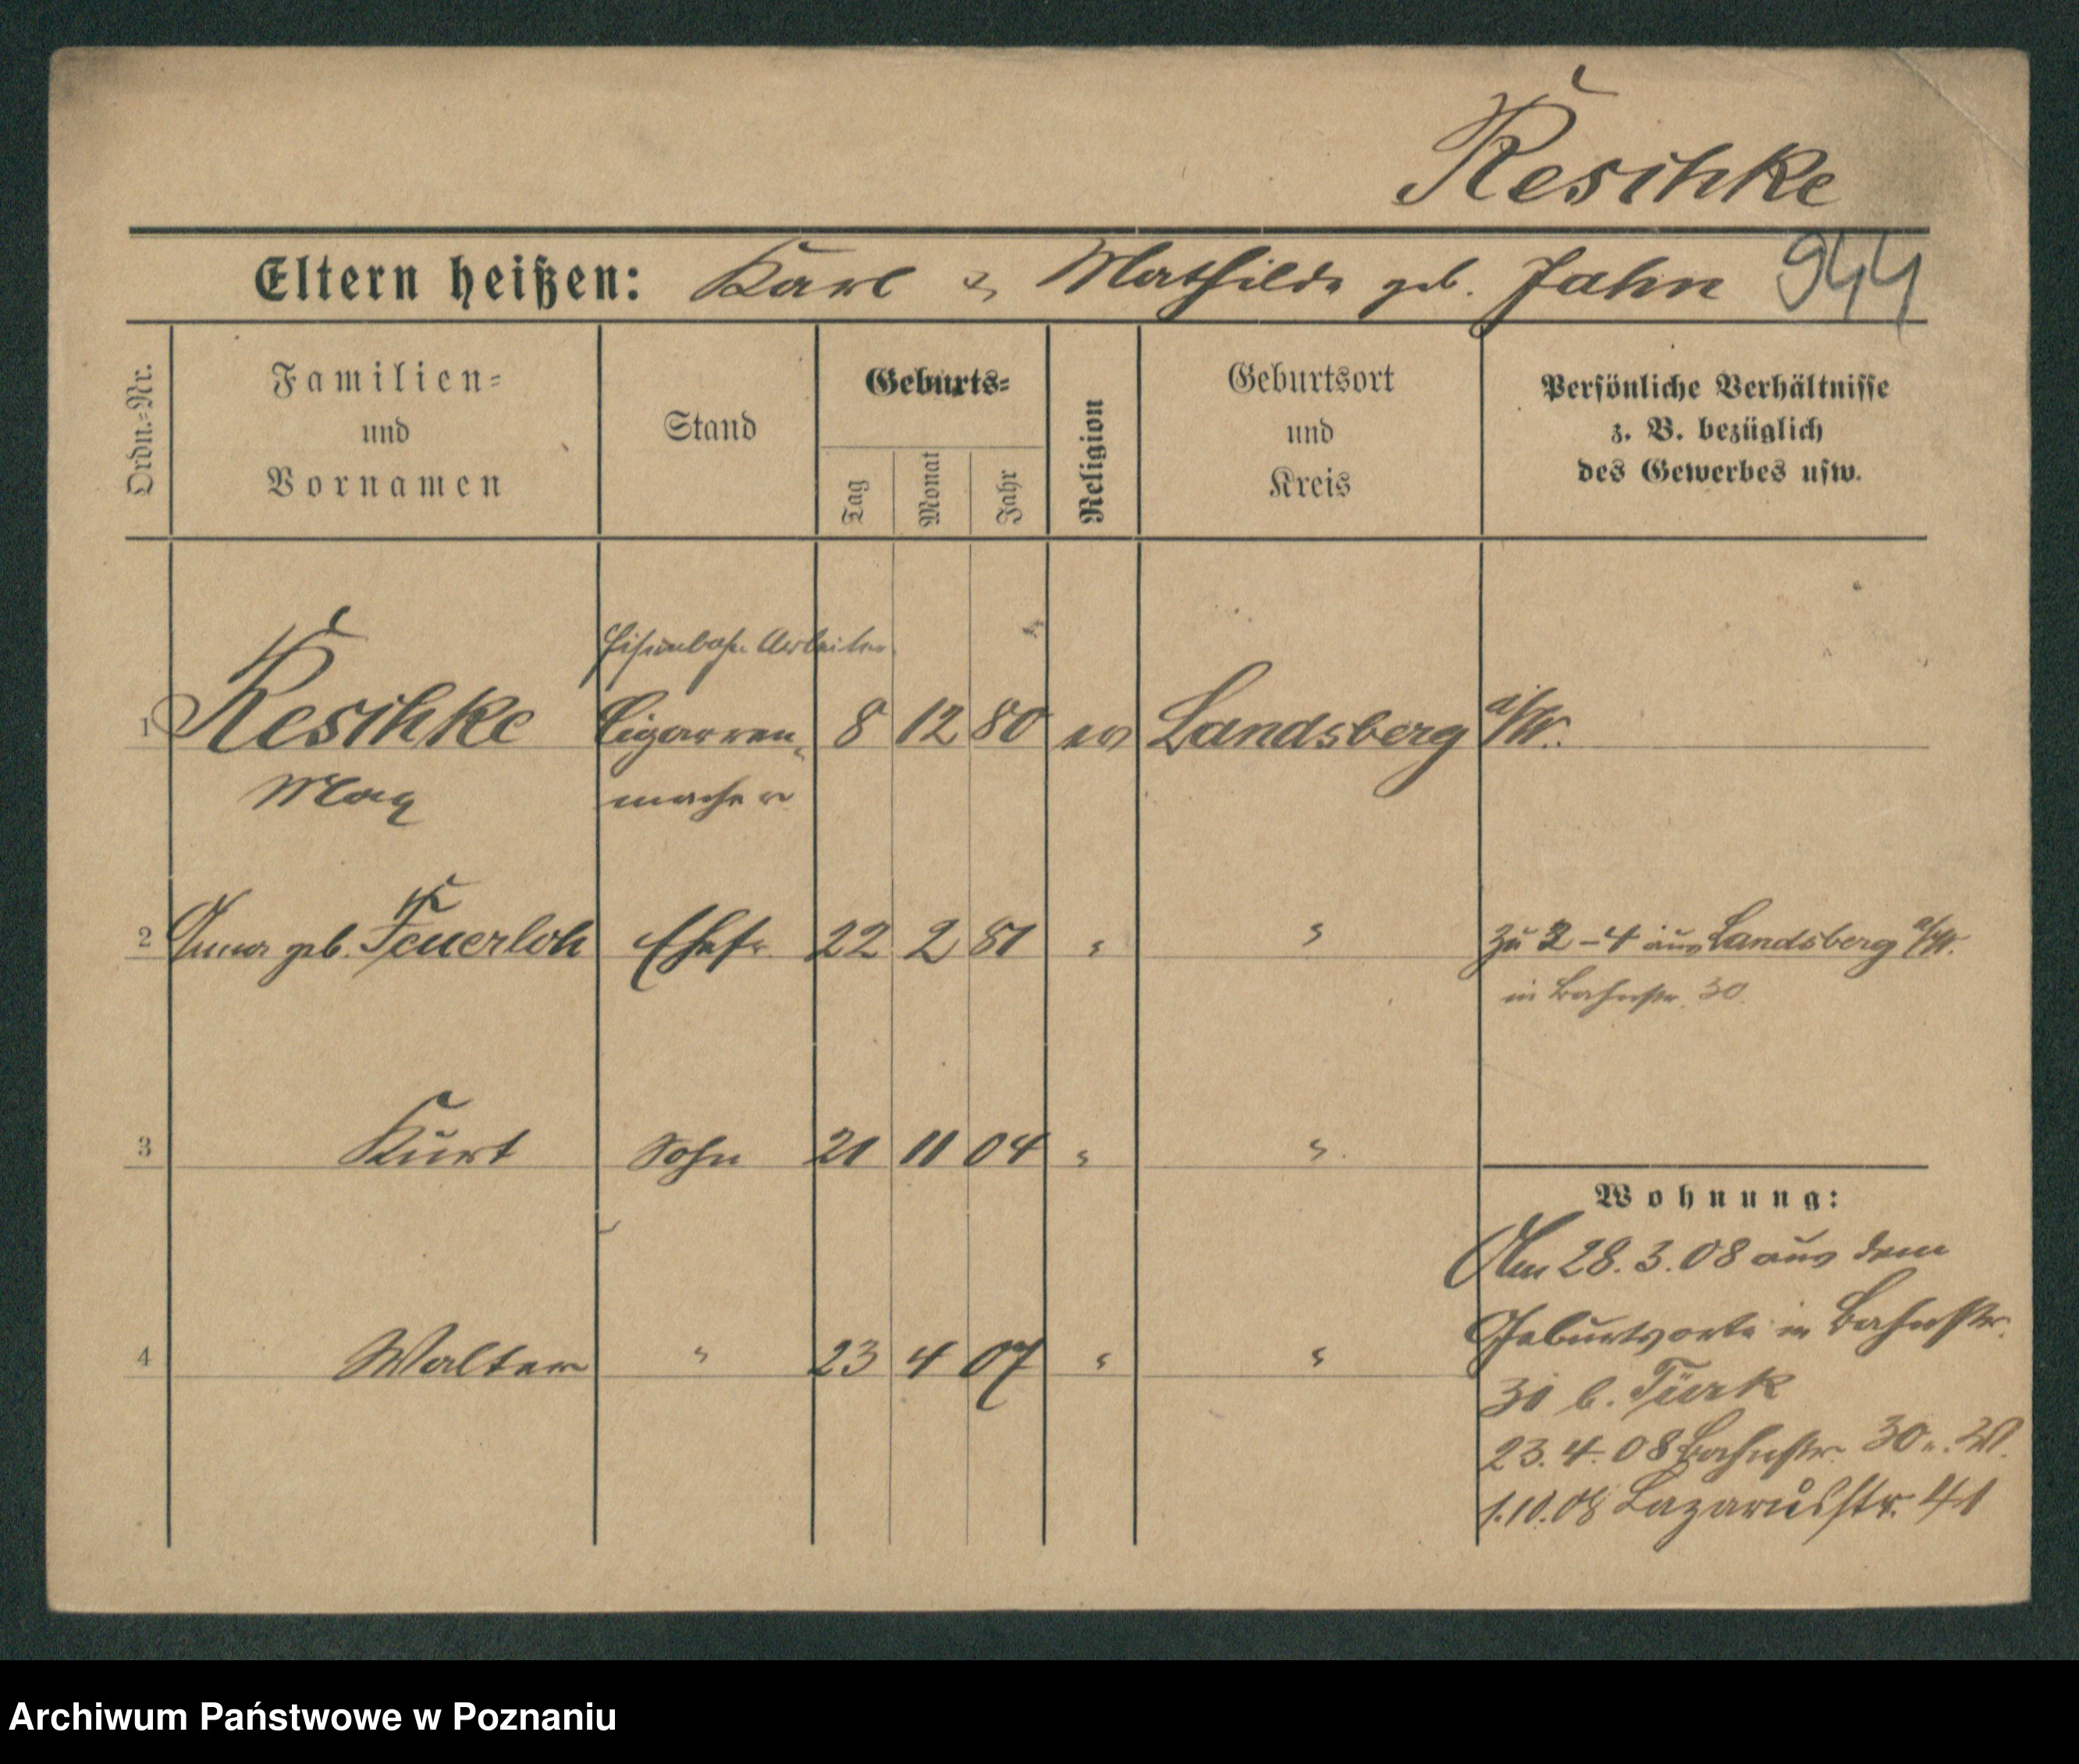 Reschke
Eltern heißen: Karl & Mathilde geb. Jahn 944
Ordn.-Nr.
Familien-
und
Vornamen
Stand
Geburts-
Tag
Monat
Jahr
Religion
Geburtsort
und
Kreis
Persönliche Verhältnisse
z. B. bezüglich
des Gewerbes usw.
Eisenbahn Arbeiter
1 Reschke Cigarren- 8 12 80 ev Landsberg a/W.
Max macher
2 Anna geb. Feuerloh Ehefr. 22 2 81 " " zu 2-4 aus Landsberg a/W.
in Bahnstr. 30.
3 Kurt Sohn 21 11 04 " "
Wohnung:
Am 28.3.08 aus dem
Geburtsorte in Bahnstr.
4 Walter " 23 4 07 " "
30 b. Türk
23.4.08 Bahnstr. 30
1.10.08 Lazarusstr. 41
Archiwum Państwowe w Poznaniu